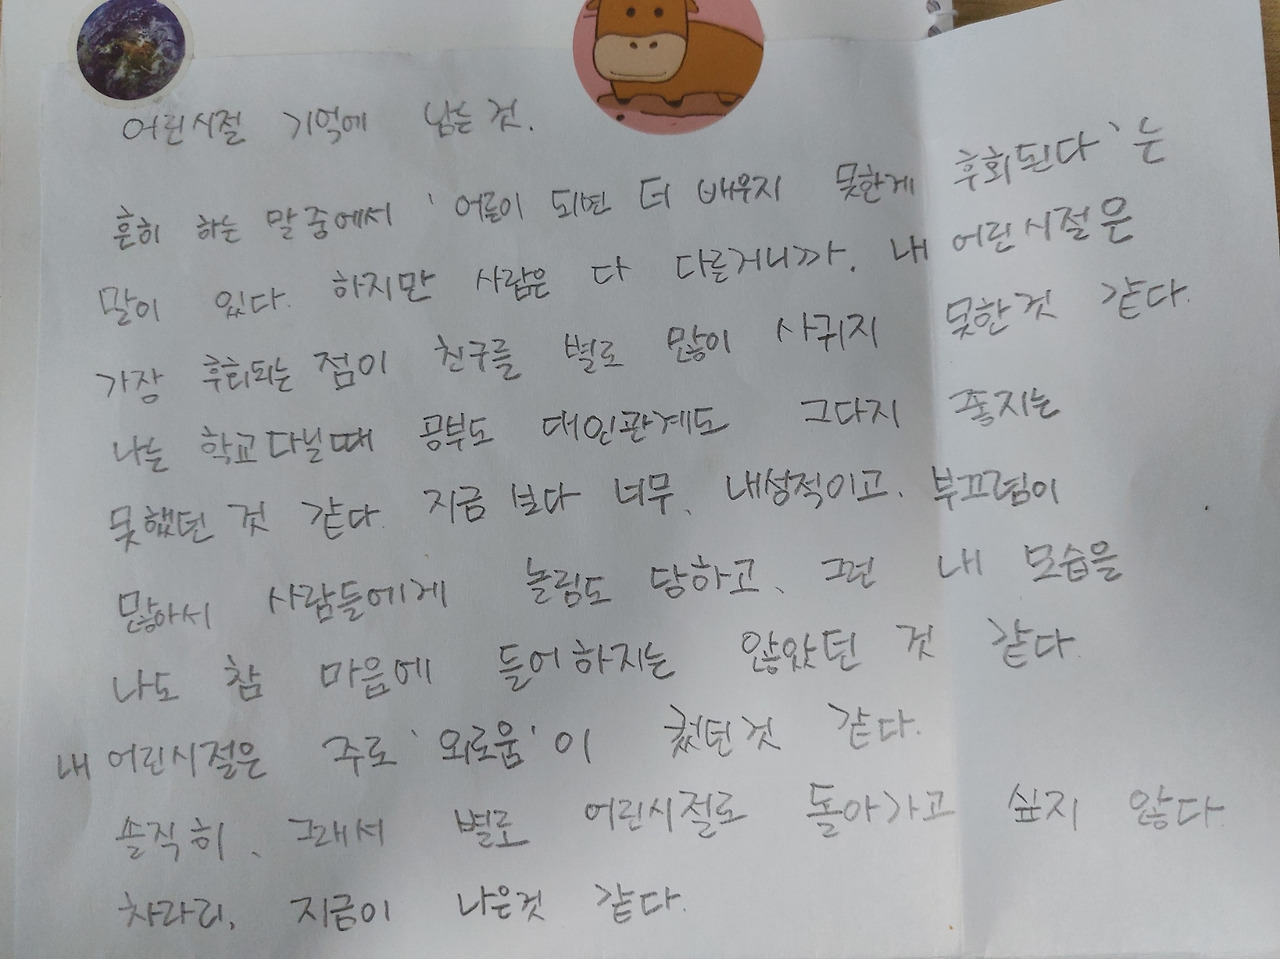 어린시절 기억에 남는 것.
흔히 하는 말 중에서 '어른이 되면 더 배우지 못한게 후회된다'는
말이 있다. 하지만 사람은 다 다른거니까. 내 어린시절은
가장 후회되는 점이 친구를 별로 많이 사귀지 못한것 같다.
나는 학교다닐때 공부도 대인관계도 그다지 좋지는
못했던 것 같다. 지금 보다 너무, 내성적이고, 부끄럼이
많아서 사람들에게 놀림도 당하고, 그런 내 모습을
나도 참 마음에 들어하지는 않았던 것 같다.
내 어린시절은 주로 '외로움'이 컸던것 같다.
솔직히, 그래서 별로 어린시절로 돌아가고 싶지 않다.
차라리, 지금이 나은것 같다.